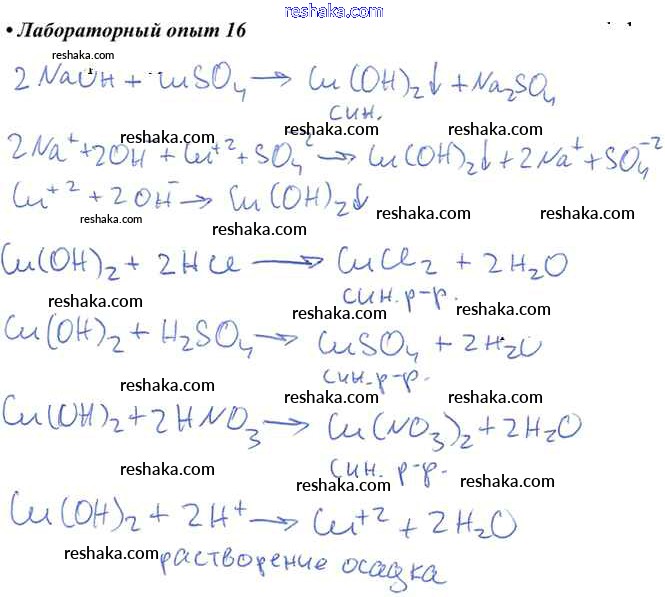 reshaka.com
• Лабораторный опыт 16
reshaka.com
2NaOH + CuSO₄ → Cu(OH)₂↓ + Na₂SO₄
reshaka.com
син.
reshaka.com reshaka.com reshaka.com
2Na⁺ + 2OH⁻ + Cu⁺² + SO₄⁻² → Cu(OH)₂↓ + 2Na⁺ + SO₄⁻²
Cu⁺² + 2OH⁻ → Cu(OH)₂↓
reshaka.com reshaka.com reshaka.com
Cu(OH)₂ + 2HCl → CuCl₂ + 2H₂O
reshaka.com син. р-р. reshaka.com
Cu(OH)₂ + H₂SO₄ → CuSO₄ + 2H₂O
син. р-р.
reshaka.com reshaka.com
Cu(OH)₂ + 2HNO₃ → Cu(NO₃)₂ + 2H₂O
син. р-р.
reshaka.com reshaka.com
reshaka.com reshaka.com
Cu(OH)₂ + 2H⁺ → Cu⁺² + 2H₂O
reshaka.com reshaka.com
растворение осадка